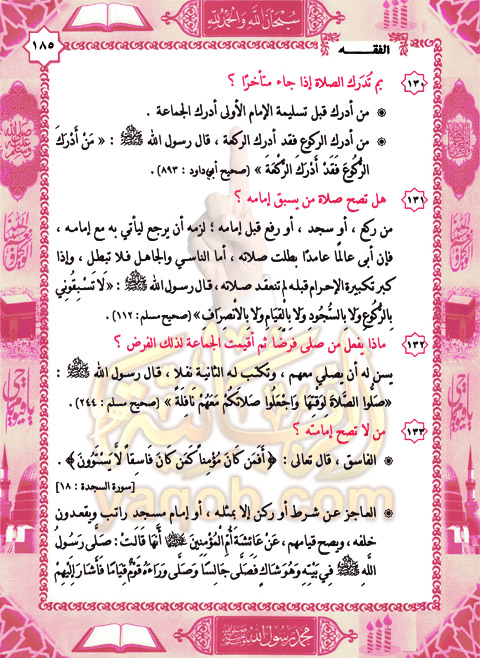 سبحان الله والحمد لله
الفقه
١٨٥
١٣٠ بم تُدرَك الصلاة إذا جاء متأخرًا ؟
من أدرك قبل تسليمة الإمام الأولى أدرك الجماعة .
من أدرك الركوع فقد أدرك الركعة ، قال رسول الله ﷺ : « مَنْ أَدْرَكَ
الرُّكُوعَ فَقَدْ أَدْرَكَ الرَّكْعَةَ » (صحيح أبي داود : ٨٩٣) .
١٣١ هل تصح صلاة من يسبق إمامه ؟
من ركع ، أو سجد ، أو رفع قبل إمامه ؛ لزمه أن يرجع ليأتي به مع إمامه ،
فإن أبى عالمًا عامدًا بطلت صلاته ، أما الناسي والجاهل فلا تبطل ، وإذا
كبر تكبيرة الإحرام قبله لم تنعقد صلاته ، قال رسول الله ﷺ : «لَا تَسْبِقُونِي
بِالرُّكُوعِ وَلَا بِالسُّجُودِ وَلَا بِالْقِيَامِ وَلَا بِالْانْصِرَافِ» (صحيح مسلم : ١١٢) .
١٣٢ ماذا يفعل من صلى فرضًا ثم أقيمت الجماعة لذلك الفرض ؟
يسن له أن يصلي معهم ، وتكتب له الثانية نفلا ، قال رسول الله ﷺ :
«صَلُّوا الصَّلَاةَ لِوَقْتِهَا وَاجْعَلُوا صَلَاتَكُمْ مَعَهُمْ نَافِلَةً» (صحيح مسلم : ٢٤٤) .
١٣٣ من لا تصح إمامته ؟
الفاسق ، قال تعالى : ﴿ أَفَمَن كَانَ مُؤْمِناً كَمَن كَانَ فَاسِقاً لَّا يَسْتَوُونَ ﴾ .
[سورة السجدة : ١٨]
العاجز عن شرط أو ركن إلا بمثله ، أو إمام مسجد راتب ويقعدون
خلفه ، ويصح قيامهم ، عَنْ عَائِشَةَ أُمِّ الْمُؤْمِنِينَ أَنَّهَا قَالَتْ : صَلَّى رَسُولُ
اللَّهِ ﷺ فِي بَيْتِهِ وَهُوَ شَاكٍ فَصَلَّى جَالِسًا وَصَلَّى وَرَاءَهُ قَوْمٌ قِيَامًا فَأَشَارَ إِلَيْهِمْ
yaqob.com
محمد رسول الله ﷺ